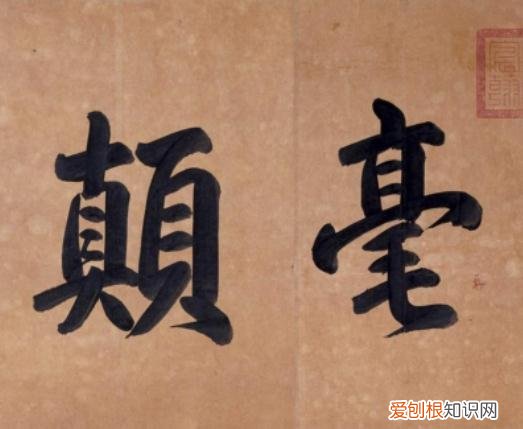 毫顛
爱刨根知识网